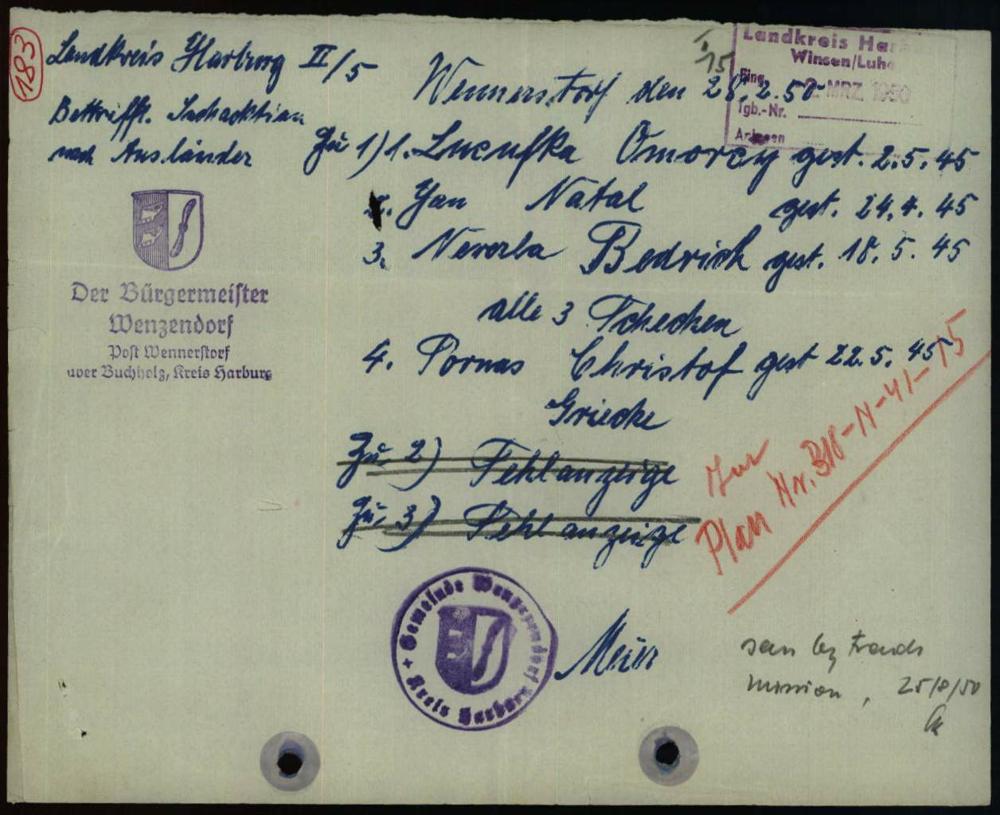 183
Landkreis Harburg II/5
Wennerstorf den 28.2.50
Landkreis Har
Winsen/Luhe
Eing. 2. MRZ 1950
Tgb.-Nr.
Anlagen
15
Bettrifft. Suchacktion
nach Ausländer
Zu 1) 1. Lucufka Omorcy gest. 2.5.45
2. Jan Natal gest. 24.4.45
3. Neverla Bedrich gest. 18.5.45
alle 3 Tschechen
4. Pornas Christof gest 22.5.45
Grieche
Zu 2) Fehlanzeige
Zu 3) Fehlanzeige
Der Bürgermeister
Wenzendorf
Post Wennerstorf
über Buchholz, Kreis Harburg
Zur
Plan Nr. B18-N-41-15
Gemeinde Wenzendorf
+ Kreis Harburg
Meier
seen by French
mission, 25/8/50